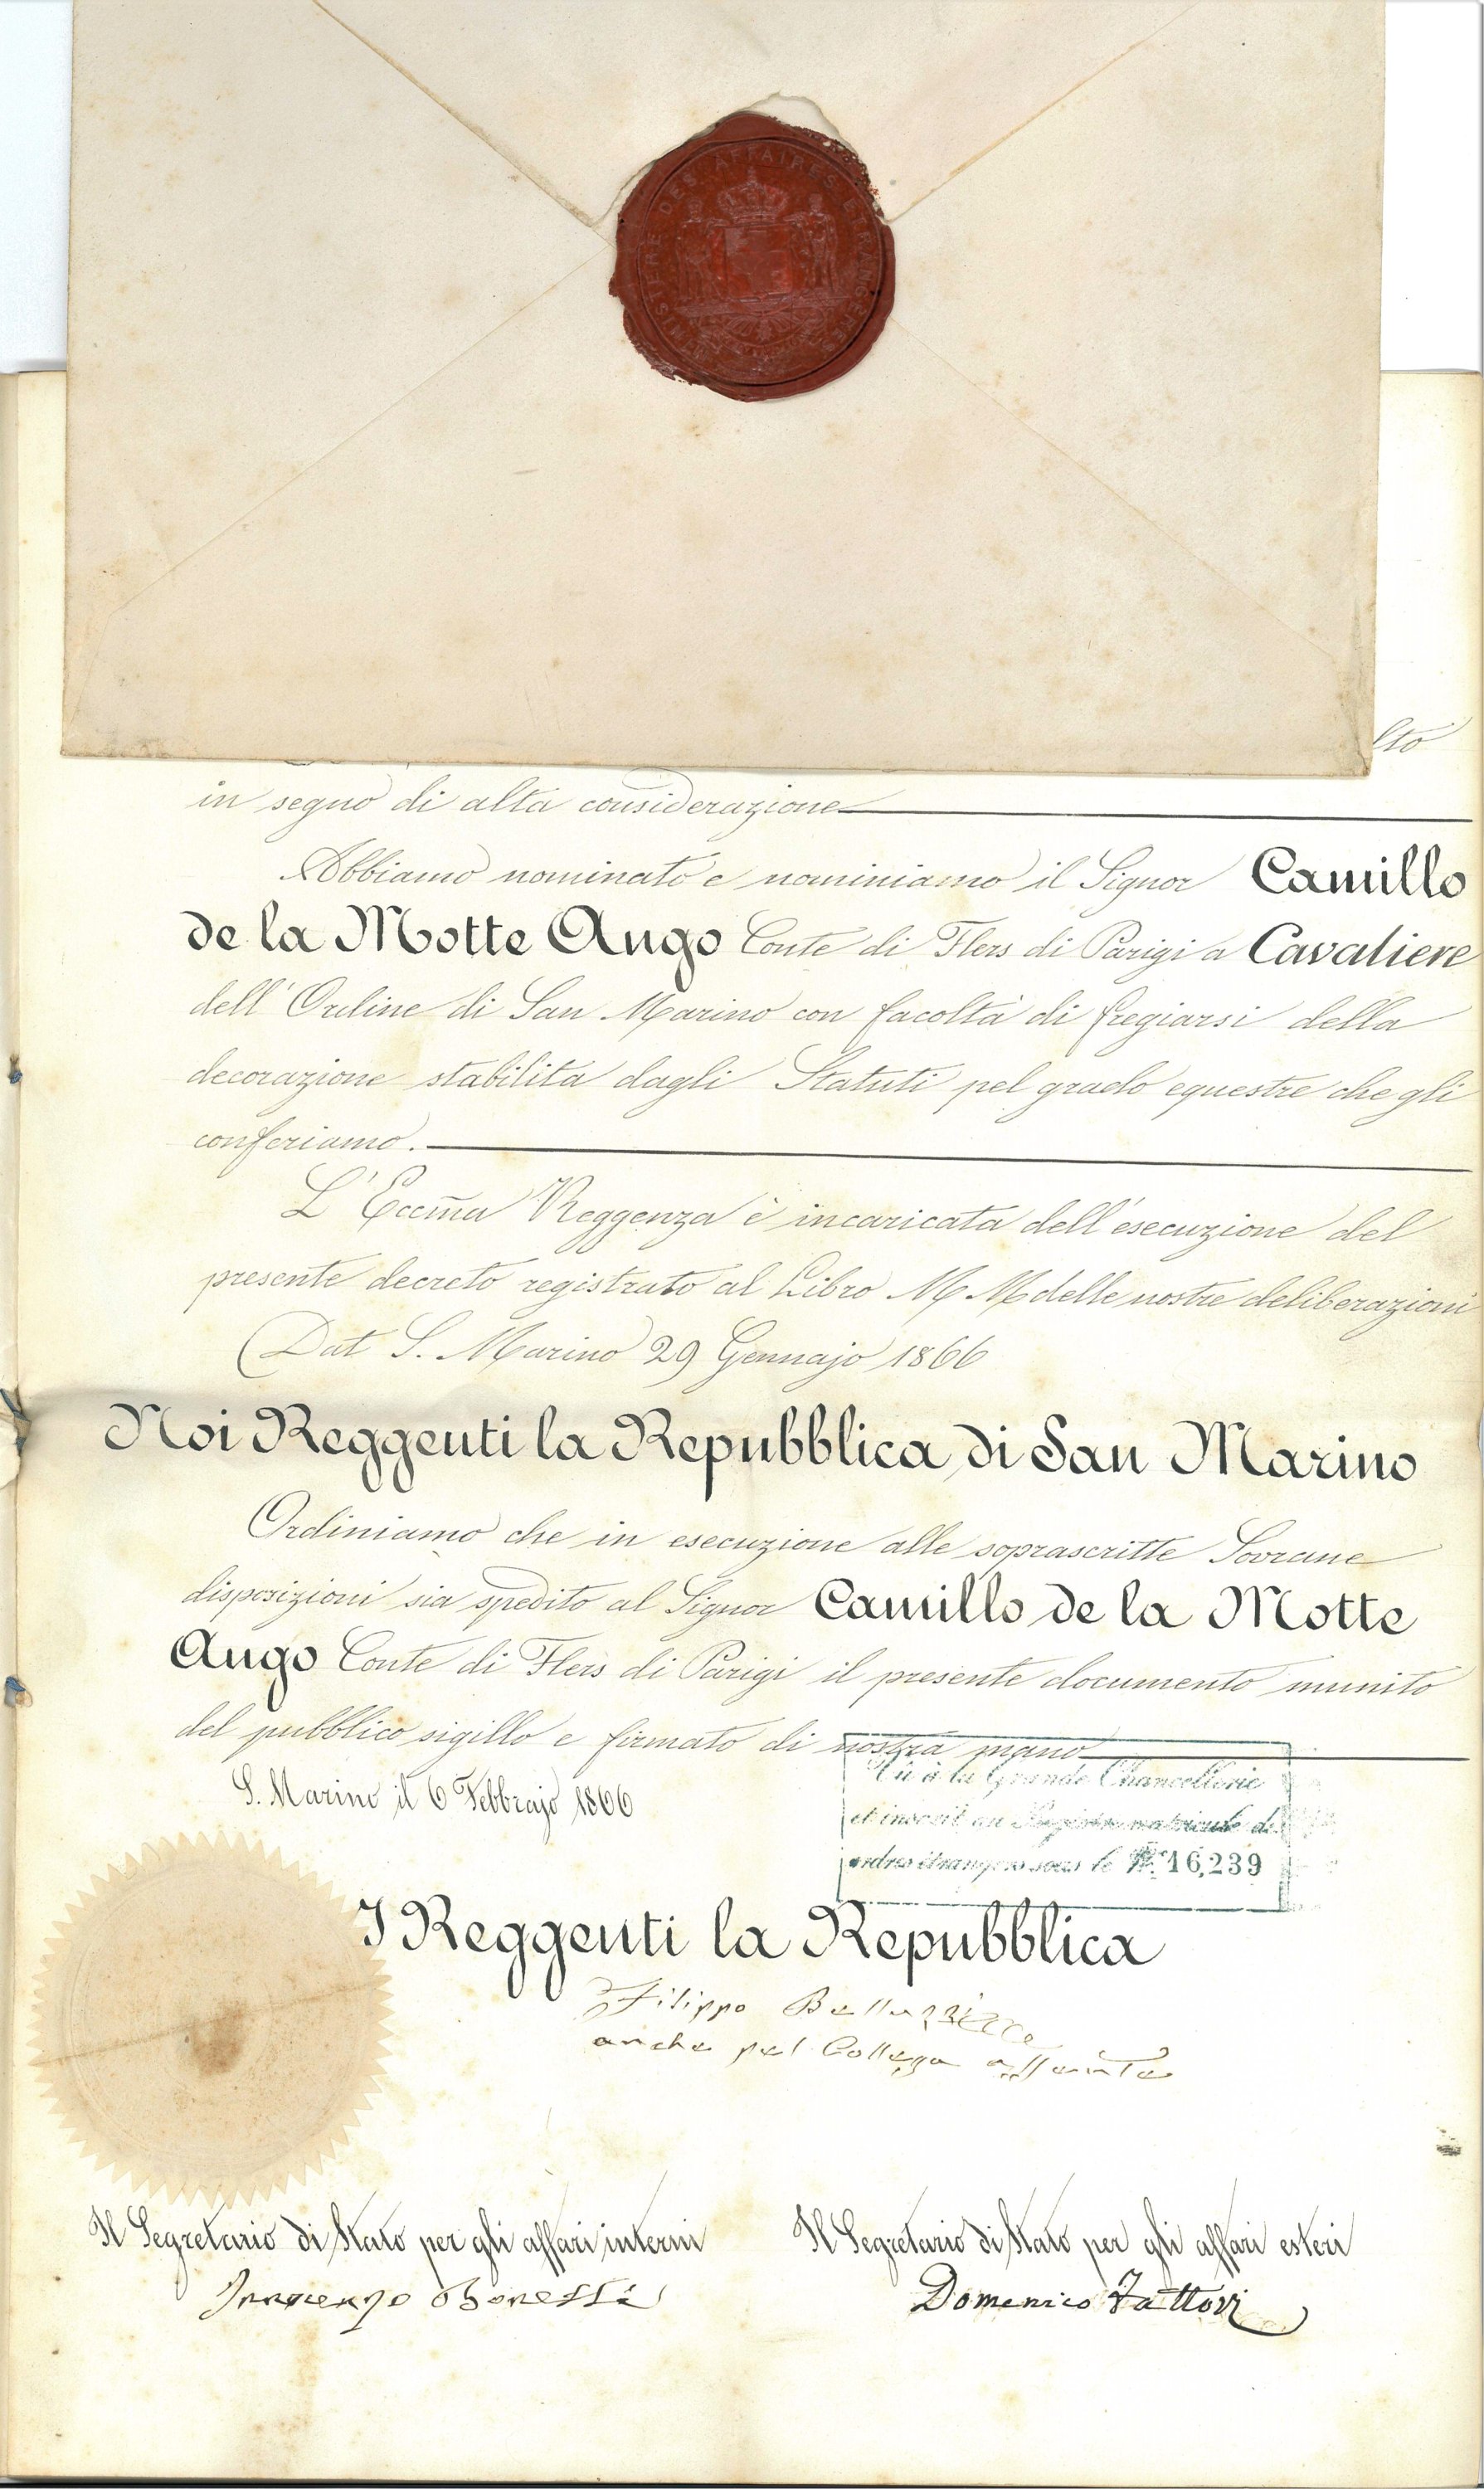 MINISTERE DES AFFAIRES ETRANGERES
lto
in segno di alta considerazione
Abbiamo nominato e nominiamo il Signor Camillo
de la Motte Ango Conte di Flers di Parigi a Cavaliere
dell' Ordine di San Marino con facoltà di fregiarsi della
decorazione stabilita dagli Statuti pel grado equestre che gli
conferiamo.
L' Eccm̃a Reggenza è incaricata dell' esecuzione del
presente decreto registrato al Libro M M delle nostre deliberazioni
Dat S. Marino 29 Gennajo 1866
Noi Reggenti la Repubblica di San Marino
Ordiniamo che in esecuzione alle soprascritte Sovrane
disposizioni sia spedito al Signor Camillo de la Motte
Ango Conte di Flers di Parigi il presente documento munito
del pubblico sigillo e firmato di nostra mano
S. Marino il 6 Febbrajo 1866
Vu à la Grande Chancellerie
et inscrit au Registre matricule des
ordres étrangers sous le No. 16,239
I Reggenti la Repubblica
Filippo Belluzzi
anche pel Collega assente
Il Segretario di Stato per gli affari interni
Il Segretario di Stato per gli affari esteri
Innocenzo Bonelli
Domenico Fattori